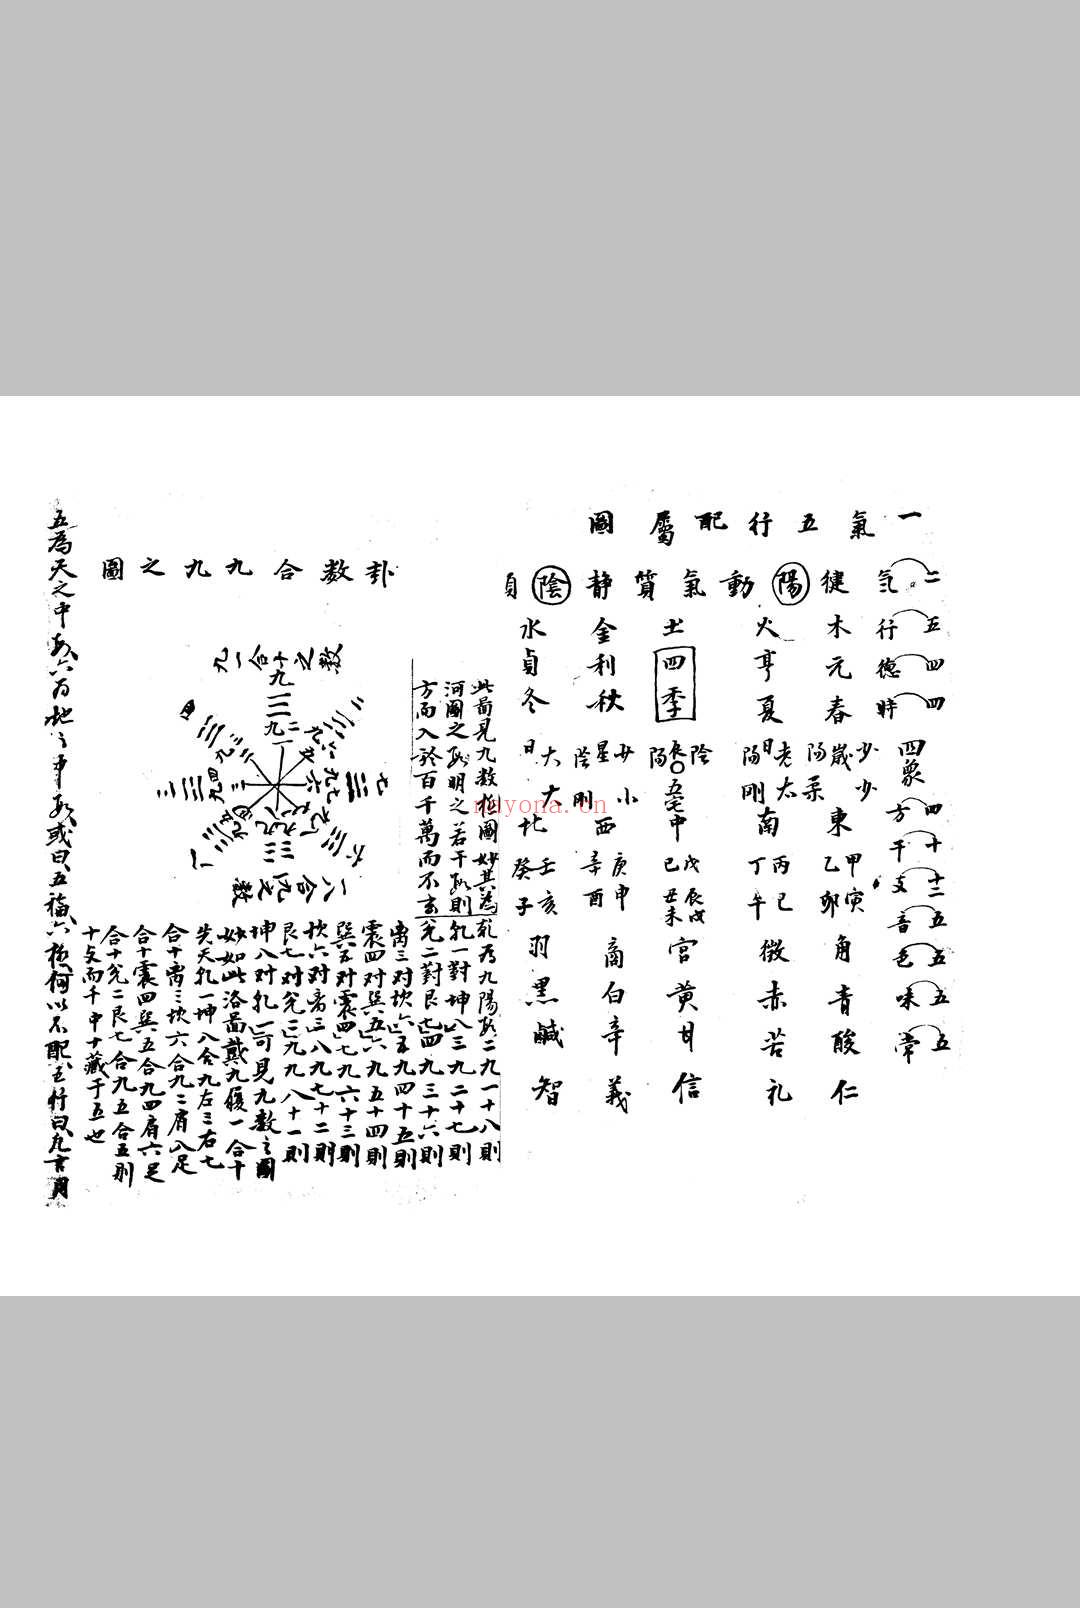 一氣五行配屬圖
二气 健陽動氣質静陰貞
五行 木火土金水
四德 元亨利貞
四時 春夏四季秋冬
四象
少歲少陽柔
老日太陽剛
陰辰陽
少星小陰剛
太日大
四方 東南中西北
十干 甲乙丙丁戊己庚辛壬癸
十二支 寅卯巳午辰戌丑未申酉亥子
五音 角徵宮商羽
五色 青赤黄白黑
五味 酸苦甘辛鹹
五常 仁礼信義智
卦数合九九之圖
九一合十之数
八合九之数
此啚見九数極圖妙其為
河圖之数明之若干数則
方而入於百千萬而不
乾為九陽数二九一十八則
乾一對坤八三九二十七則
兌二對艮七四九三十六則
离三对坎六五九四十五則
震四对巽五六九五十四則
巽五对震四七九六十三則
坎六对离三八九七十二則
艮七对兌二九九八十一則
坤八对乹一可見九数之圖
妙如此洛啚戴九履一合十
先天乹一坤八合九左三右七
合十离三坎六合九二肩八足
合十震四巽五合九四肩六足
合十兌二艮七合九五合五則
十支而千中十藏于五也
五為天之中数六為地之中数或曰五福六極何以不配五行曰